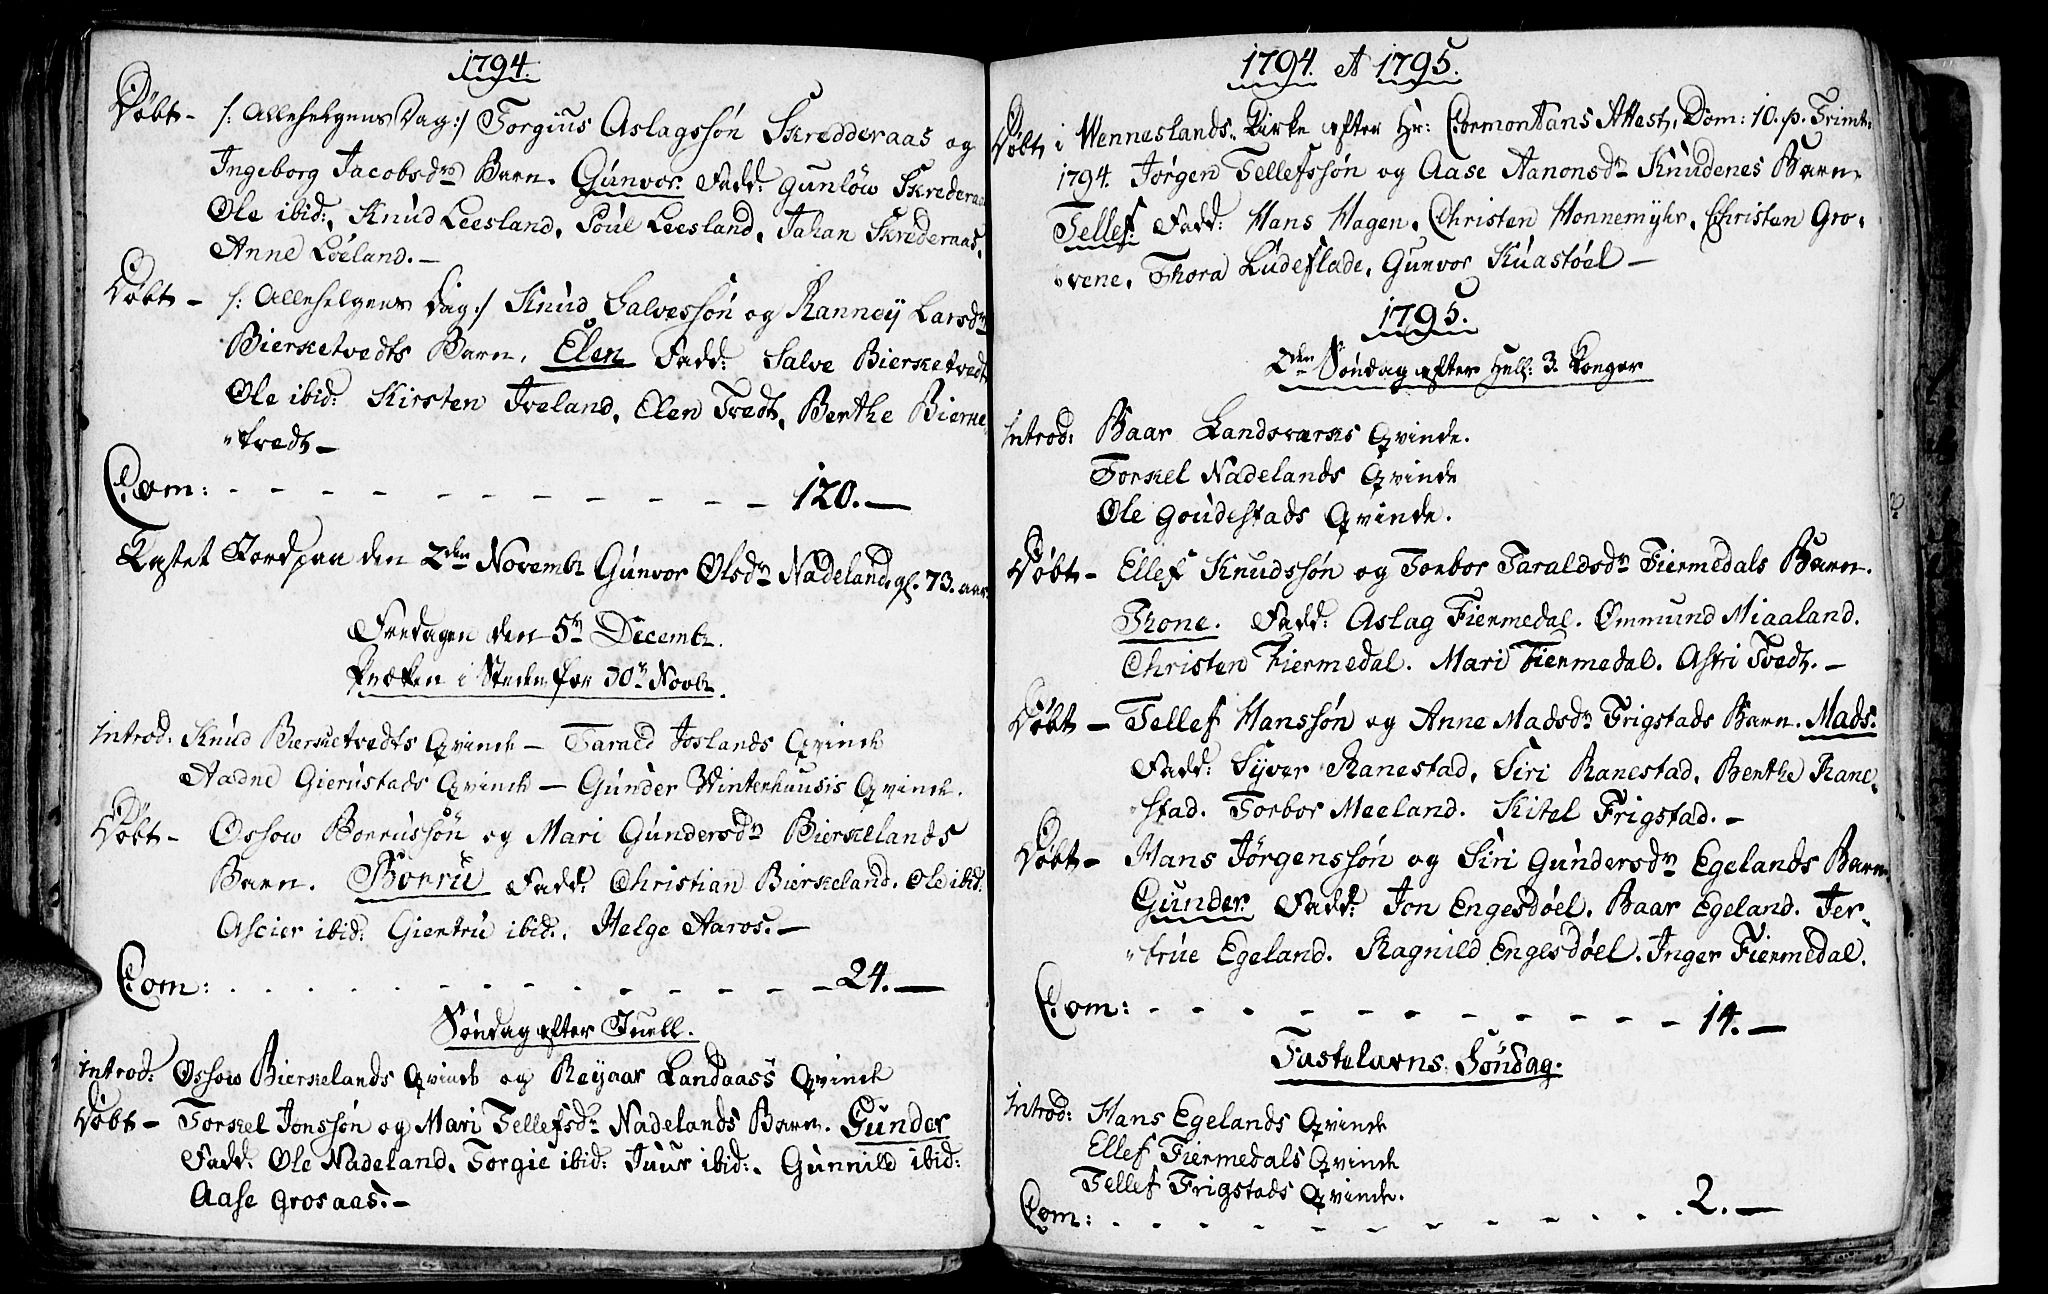 1794.
Döbt - /: Allehelgens Dag :/ Torgius Aslagssön Skredderaas og
Ingeborg Jacobsdr Barn. Gunvor. Fadd: Gunlöw Skrederaas
Ole ibid:, Knud Leesland, Poul Leesland, Johan Skrederaas,
Anne Löeland. -
Döbt - /: Allehelgens Dag :/ Knud Salvessön og Ranney Larsdr
Bierketvedts Barn, Elen Fadd: Salve Bierketvedt
Ole ibid: Kirsten Iveland, Elen Tvedt, Berthe Bierke-
tvedt -
Com: - - - - - - - - - - - 120. -
Kastet Jord paa den 2den Novembr Gunvor Olsdr Nadeland gl. 73. aar.
Fredagen den 5te Decembr.
Præken i Steden for 30te Novbr.
Introd: Knud Bierketvedts Qvinde - Tarald Joslands Qvinde
Aadne Gierustads Qvinde - Gunder Winterhuusis Qvinde.
Döbt - Ossow Borrussön og Mari Gundersdr Bierkelands
Barn. Borru Fadd: Christian Bierkeland. Ole ibid:
Ascier ibid: Giertru ibid:, Helge Aaros. -
Com: . . . . . - - - - - - 24. -
Söndag efter Juell.
Introd: Ossow Bierkelands Qvinde og Reyaar Landaass Qvinde
Döbt - Torkel Jonssön og Mari Tellefsdr Nadelands Barn. Gunder
Fadd: Ole Nadeland, Torgie ibid: Juur ibid:, Gunnild ibid:
Aase Grosaas. -
1794. et 1795.
Döbt i Wenneslands Kirke efter Hr: Cormontans Attest, Dom: 10. p. Trinit:
1794. Jörgen Tellefssön og Aase Aanonsdr Knudenes Barn
Tellef: Fadd: Hans Hagen, Christen Honnemyhr, Christen Gro-
vene, Thora Ludeflade, Gunvor Kuastöel -
1795.
2den Söndag efter Hell: 3. Konger
Introd: Baar Landsverks Qvinde.
Torkel Nadelands Qvinde
Ole Goudestads Qvinde.
Döbt - Ellef Knudssön og Torbor Taraldsdr Fiermedals Barn.
Thone. Fadd: Aslag Fiermedal. Ommund Miaaland.
Christen Fiermedal. Mari Fiermedal. Astri Tvedt. -
Döbt - Tellef Hanssön og Anne Madsdr Frigstads Barn. Mads.
Fadd: Syver Ranestad, Siri Ranestad, Berthe Rane-
stad. Torbor Meeland. Kitel Frigstad. -
Döbt - Hans Jörgenssön og Siri Gundersdr Egelands Barn
Gunder. Fadd: Jon Engesdöel. Baar Egeland. Jer-
true Egeland. Ragnild Englsdöel. Inger Fiermedal.
Com: - - - - - - - - - - - 14. -
Fastelavns Söndag.
Introd: Hans Egelands Qvinde
Ellef Fiermedals Qvinde
Tellef Frigstads Qvinde.
Com: . . - - - - - - - . . . 2. -